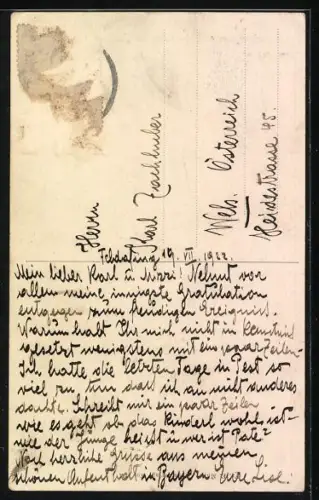 Herrn
Karl Zachhuber
Wels. Österreich
Tchdating 19. VII. 1922.
Mein lieber Karl u. Mizzi! Nehmt vor
allem meine innigste Gratulation
entgegen zum freudigen Ereignis.
Warum habt Ihr mich nicht in Kenntnis
gesetzt wenigstens mit ein paar Zeilen.
Ich hatte die letzten Tage in Pest so
viel zu tun dass ich an nicht anderes
dachte. Schreibt mir ein paar Zeilen
wie es geht ob das Kinderl wohl ist
wie der Junge heisst u. wer ist Pate?
Noch herrliche Grüsse aus meinem
schönen Aufenthalt in Bayern Eure Lisl.